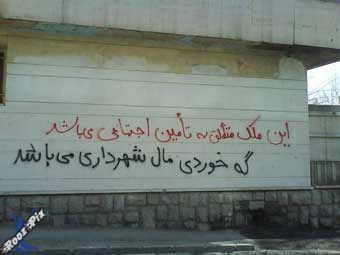 این ملک متعلق به تأمین اجتماعی می باشد
گه خوردی مال شهرداری می باشد
Roozpix